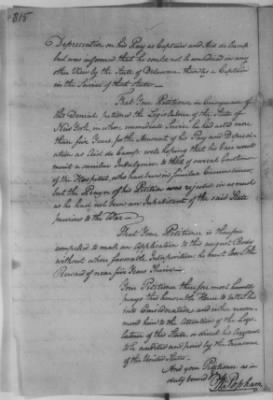 815
Depreciation on his Pay as Captain and Aid de Camp
but was informed that he could not be considered in any
other View by the State of Delaware than by a Captain
in the Service of that State.
That Your Petitioner in Consequence of
this Denial petitioned the Legislature of the State of
New York, in whose immediate Service he had acted more
than five Years for the Amount of his Pay and Depreci-
ation as Aid de Camp with hoping that his Case would
meet a similar Indulgence to that of several Gentlemen
of the Hospital, who have been in familiar Circumstances,
but the Prayer of his Petition was rejected in as much
as he had not been an Inhabitant of the said State
previous to the War.
That Your Petitioner is therefore
compelled to make an Application to this august Body
without whose favorable Interposition he must lose the
Reward of near five Years Service.
Your Petitioner therefore most humbly
prays the honorable House to take his
into Consideration and either recom-
mend him to the Attention of the Legis-
lature of this State, or direct his Accounts
to be audited and paid by the Treasurer
of the United States.
And your Petitioner as in
duty bound
Wm Popham